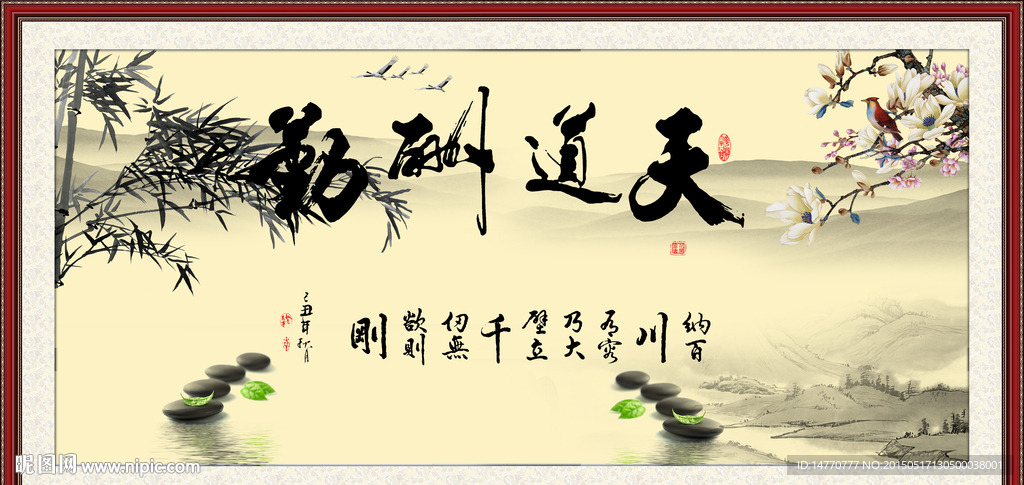 天道酬勤
纳百川有容乃大壁立千仞無欲則剛
丑年秋月
昵图网 www.nipic.com
ID:14770777 NO:20150517130500038001